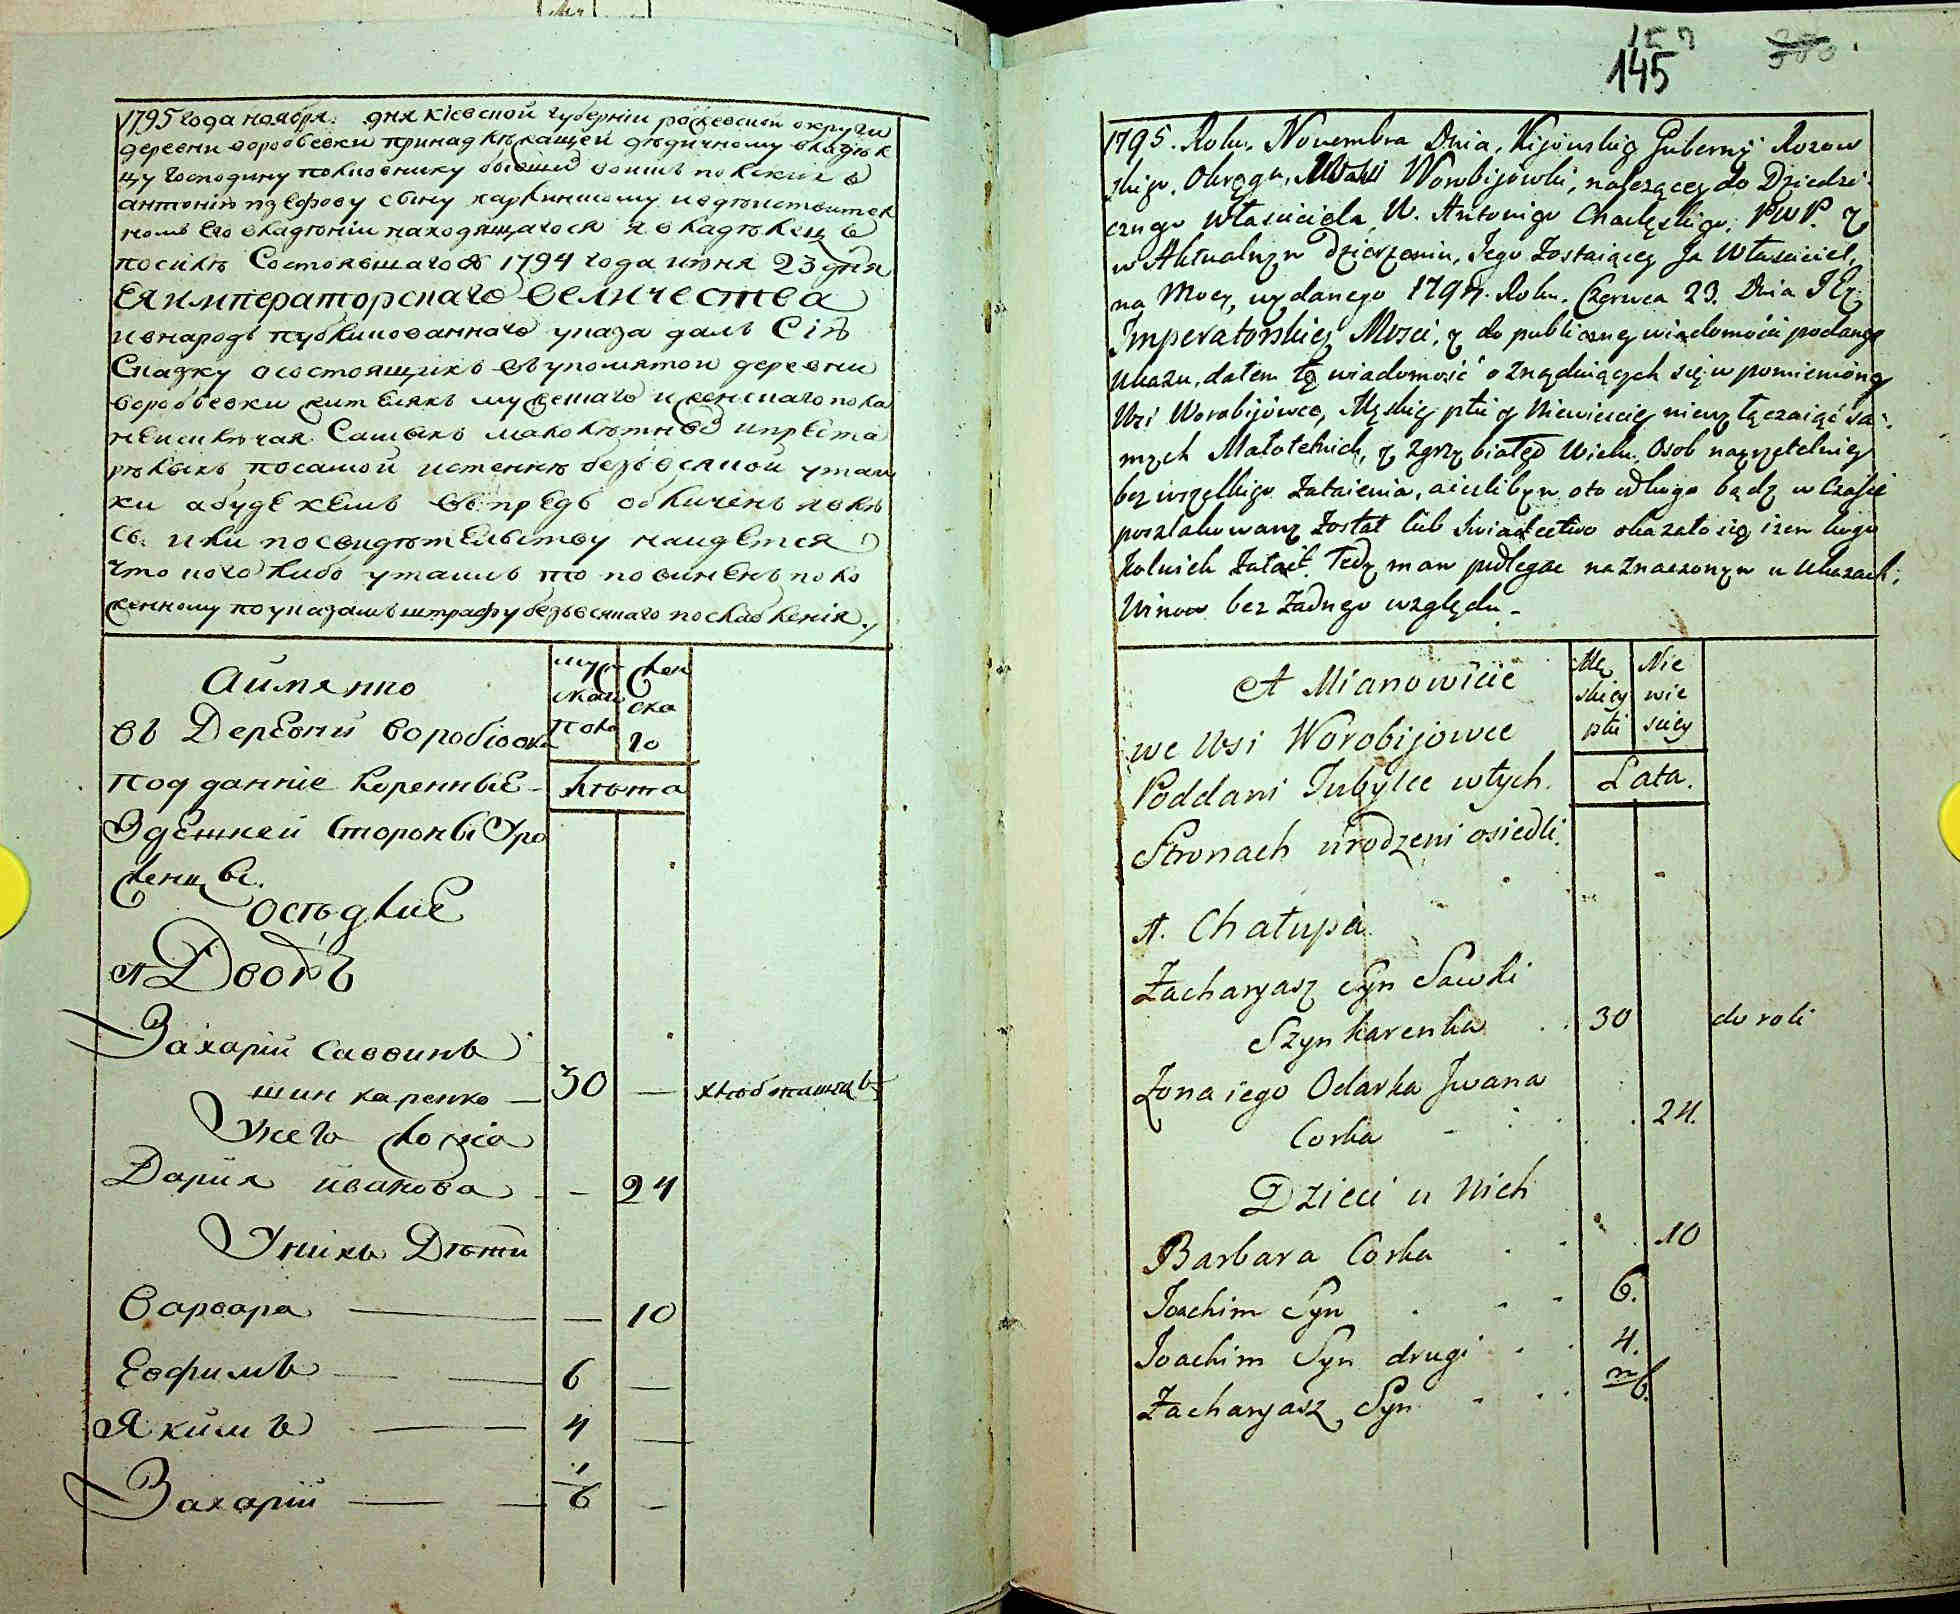 1795 года ноября: дня киевской губернiи расковской округи
деревни воробьевки принадлѣжащей дѣдичному владѣл
цу господину полковнику бывшихъ воискъ польскихъ
антонiю сыну
номъ его владѣнiи находящагося я владѣлецъ
посилѣ Состоявшагося 1794 года июня 23 дня
Ея императорскаго величества
и внародъ публикованнаго указа далъ Сiю
Сказку о состоящихъ въ упомятой деревни
воробьевки жителяхъ мужескаго и женскаго пола
неисключая Самыхъ малолѣтныхъ и преста
рѣлыхъ по самой истеннѣ безъ всякой утай
ки а будежемъ впредь обличенъ явлю
сь. или по свидѣтельству наидется
что кого либо утаилъ то повиненъ поло
женному по указамъ штрафу безъ всякаго послабленiя.
Аймянно
въ Деревнй воробiовки
под даннiе коренныЕ
Здѣшней Стороны Уро
женцы.
осѣдлиЕ
1 Дворъ
мужскаго пола
женскаго
лѣта
Захарiй саввинъ
шинкаренко — 30 — хлебопашецъ
У него жона
Дария иванова - — 24
У нихъ Дѣти
Варвара — — 10
Евфимъ — 6 —
Якимъ — 4 —
Захарiй — 1/6 —
145
1795. Roku. Novembra Dnia, Kijowskiey Guberny Rozow
skiego, Okręgu, Wsi Worobijowki, należącey do Dziedzi
cznego Właściciela W. Antoniego Charlęskiego, PWP. y
w Aktualnym dzierżeniu, Jego Zostaiącey Ja Właściciel,
na Mocy, wydanego 1794. Roku. Czerwca 23. Dnia JEy
Imperatorskiey Mości, y do publiczney wiadomości podanego
Ukazu, dałem tę wiadomość o znayduiących się w pomienioney
Wsi Worobijowce, Męskiey płci y Niewiesciey niewyłączaiąc sa
mych Małoletnich, y zgrzybiałego Wieku Osob nayrzetelniey
bez wszelkiego Zataienia, a ieslibym oto długo bądz w Czasie
poszlakowany został lub świadectwo okazało się iżem kogo
kolwiek Zataił. Tedy mam podlegac naznaczonym w Ukazach
Winom bez żadnego względu. -
A Mianowicie
we Wsi Worobijowce
Poddani Tubylce w tych
Stronach urodzeni osiedli.
Męskiey płci
Niewiesciey
Lata.
1. Chałupa
Zacharyasz Syn Sawki
Szynkarenka . . 30 do roli
Żona iego Odarka Iwana
Corka - . . . 24.
Dzieci u Nich
Barbara Corka . . . 10
Joachim Syn . . . 6.
Joachim Syn drugi . . 4.
Zacharyasz Syn . . . m/6.